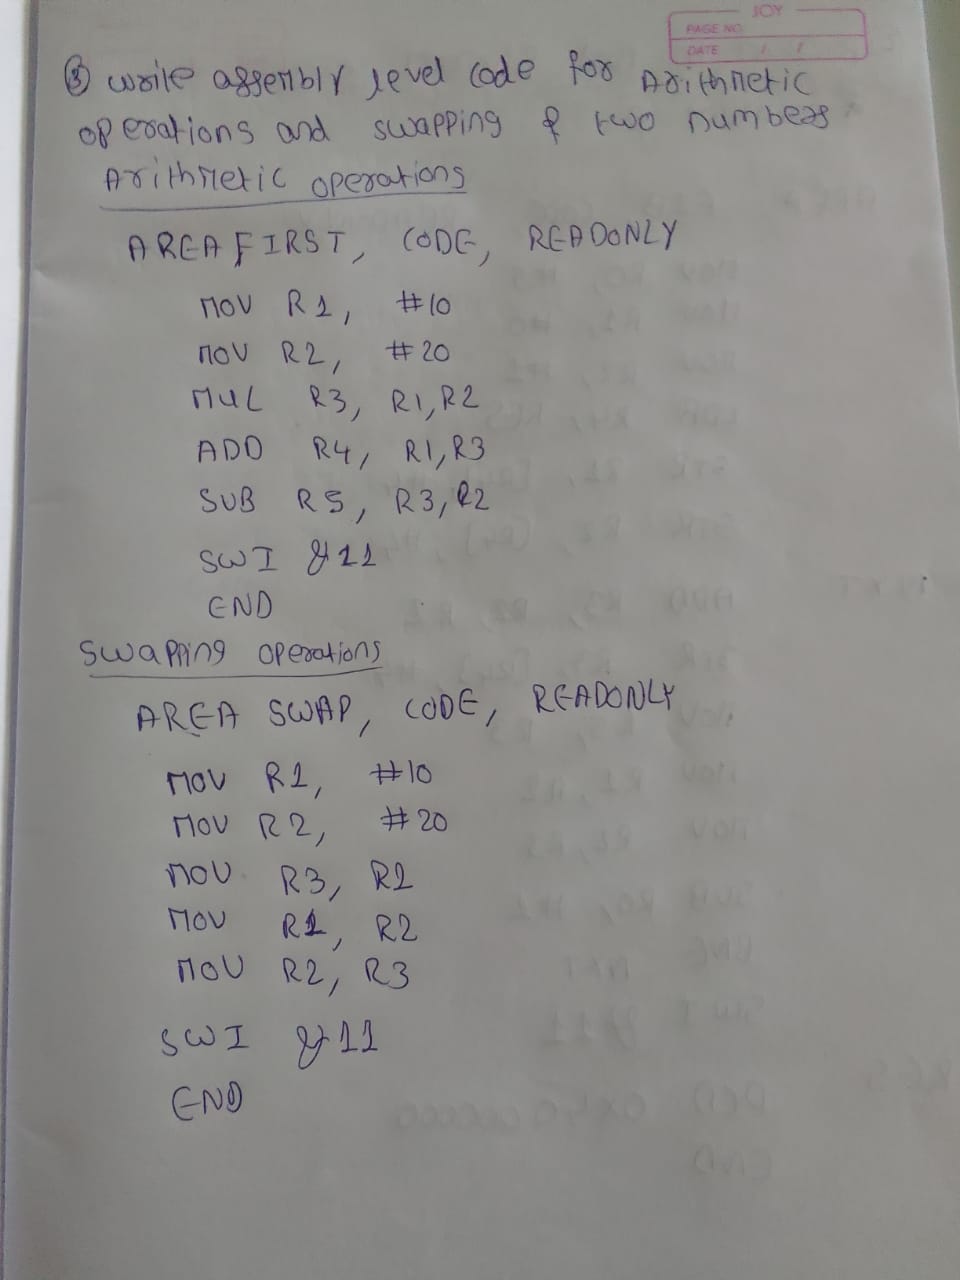 JOY
PAGE NO.
DATE / /
③ write assembly level code for Arithmetic
operations and swapping of two numbers
Arithmetic operations
AREA FIRST, CODE, READONLY
MOV R1, #10
MOV R2, #20
MUL R3, R1,R2
ADD R4, R1,R3
SUB R5, R3,R2
SWI &11
END
Swapping operations
AREA SWAP, CODE, READONLY
MOV R1, #10
MOV R2, #20
MOV R3, R1
MOV R1, R2
MOV R2, R3
SWI &11
END